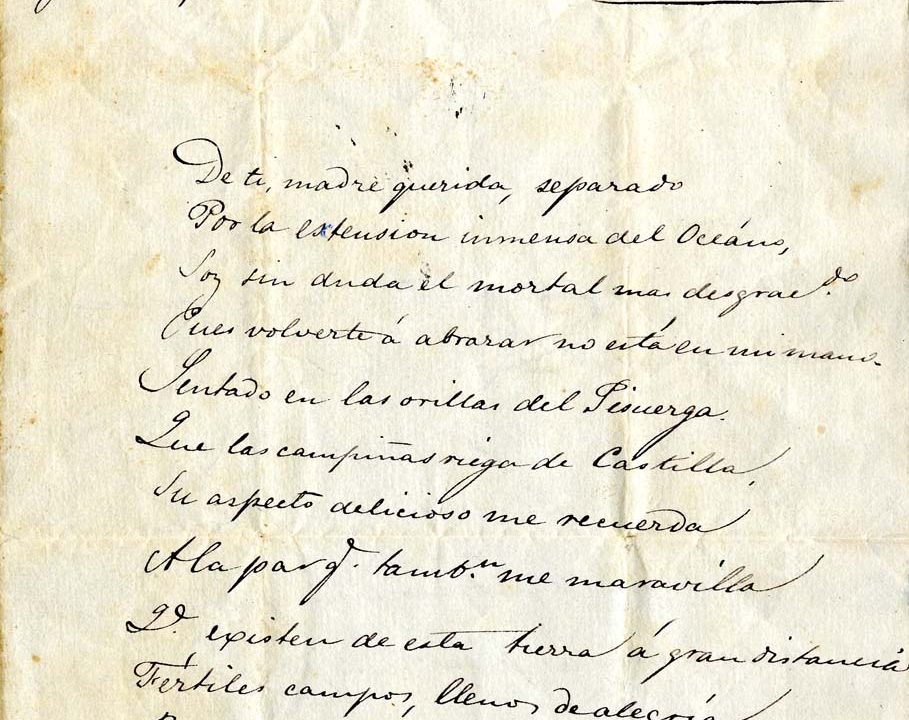 De ti, madre querida, separado
Por la extension inmensa del Oceáno,
Soy sin duda el mortal mas desgrac.do
Pues volverte á abrazar no está en mi mano.
Sentado en las orillas del Pisuerga.
Que las campiñas riega de Castilla,
Su aspecto delicioso me recuerda
A la par q.e tamb.n me maravilla
Q.e existen de esta tierra á gran distancia
Fértiles campos, llenos de alegría